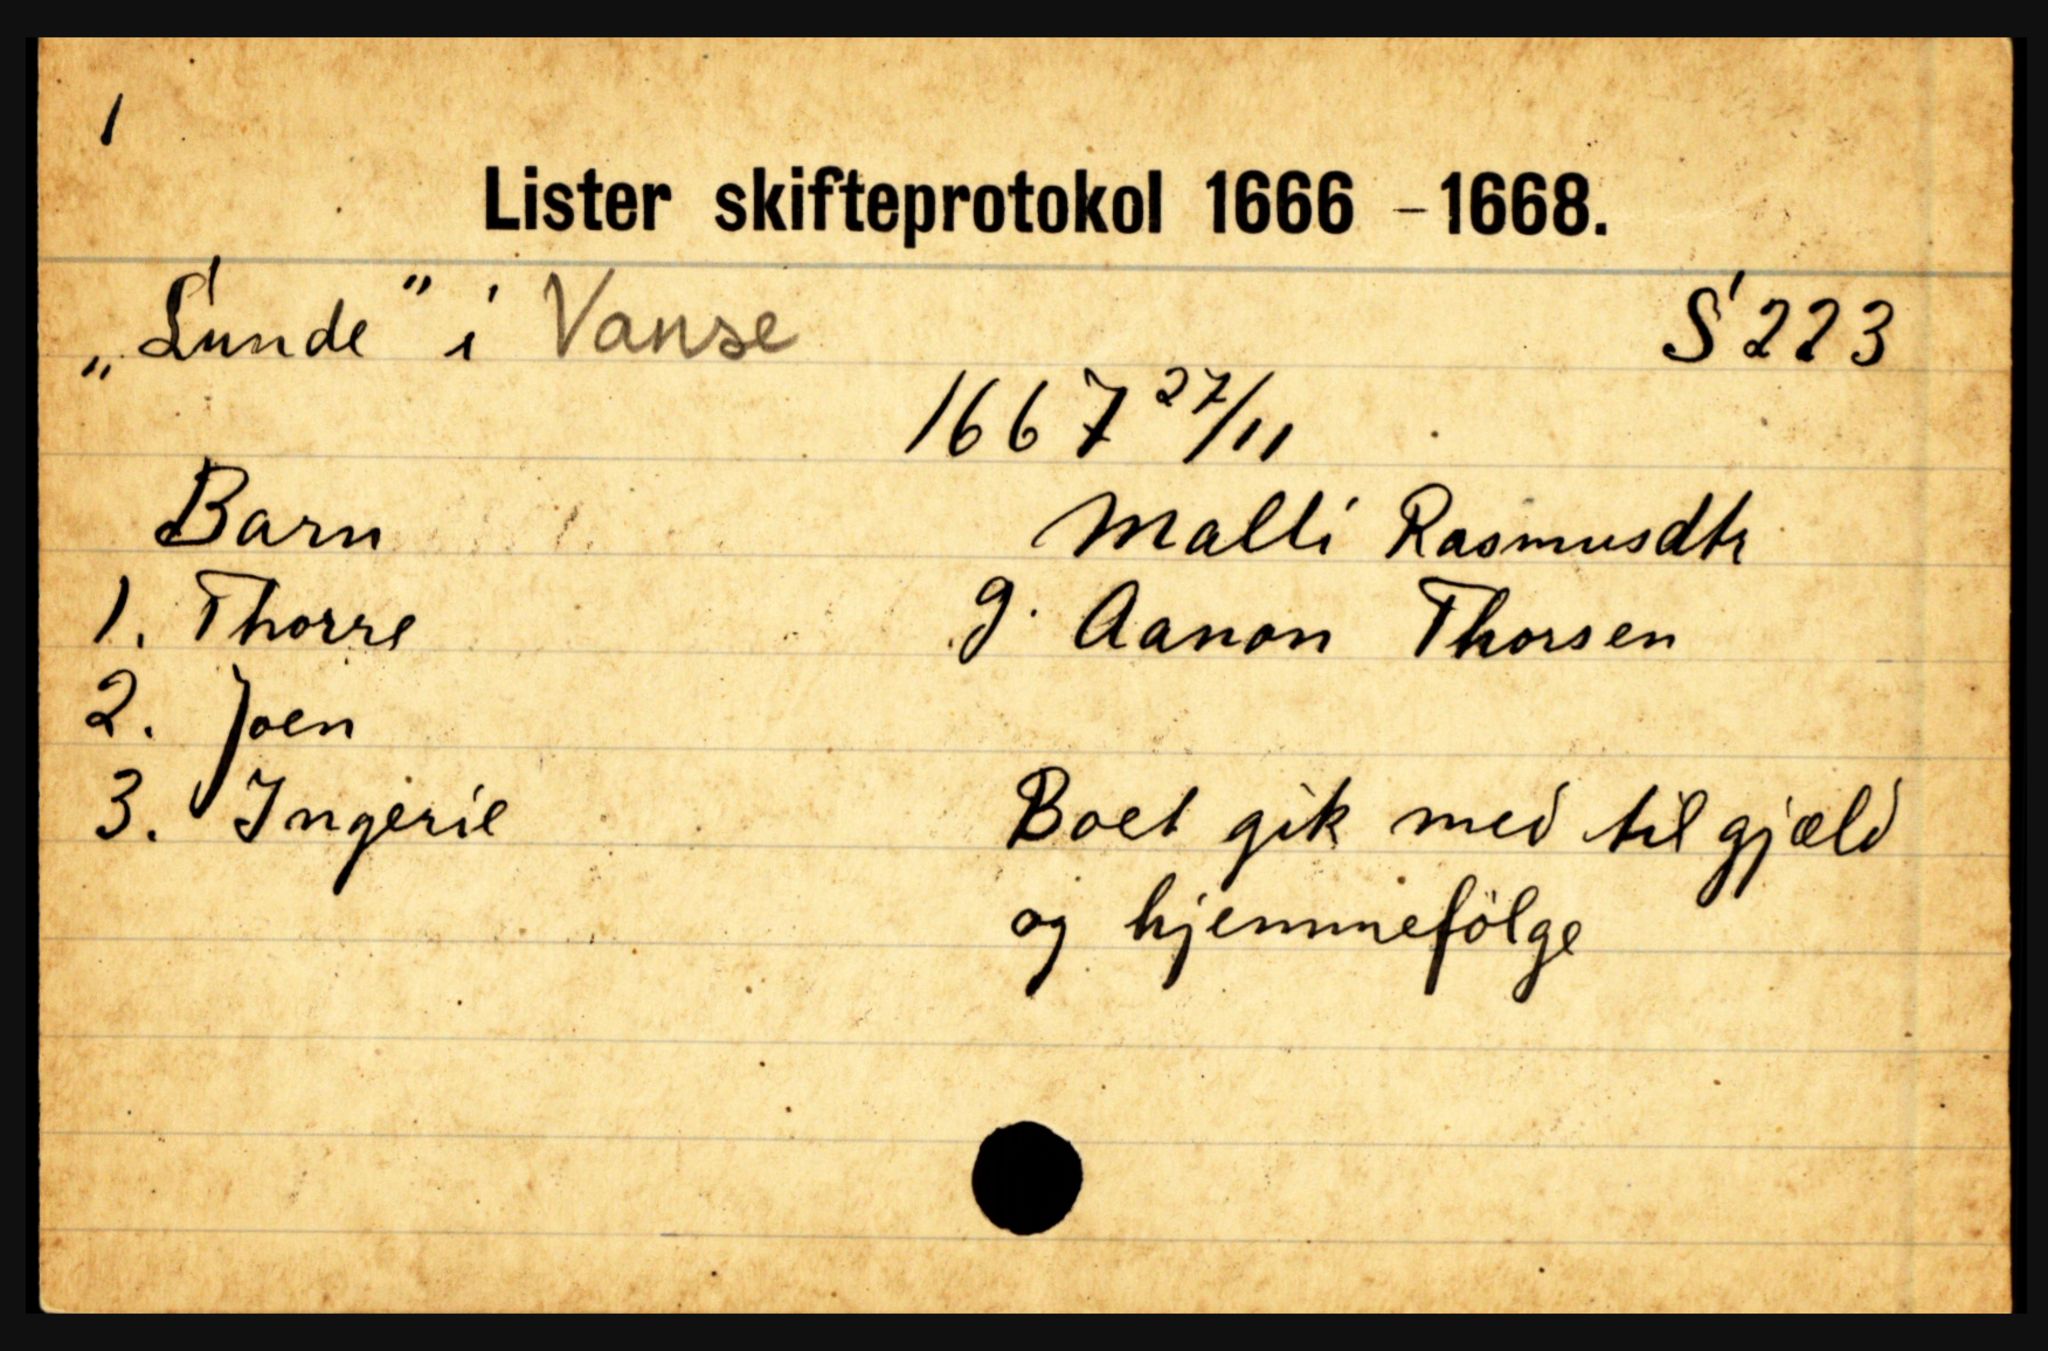 1
Lister skifteprotokol 1666 - 1668.
„Lunde” i Vanse S 223
1667 27/11
Barn Malli Rasmusdtr
1. Thorre g. Aanon Thorsen
2. Joen
3. Ingerie Boet gik med til gjæld
og hjemmefölge